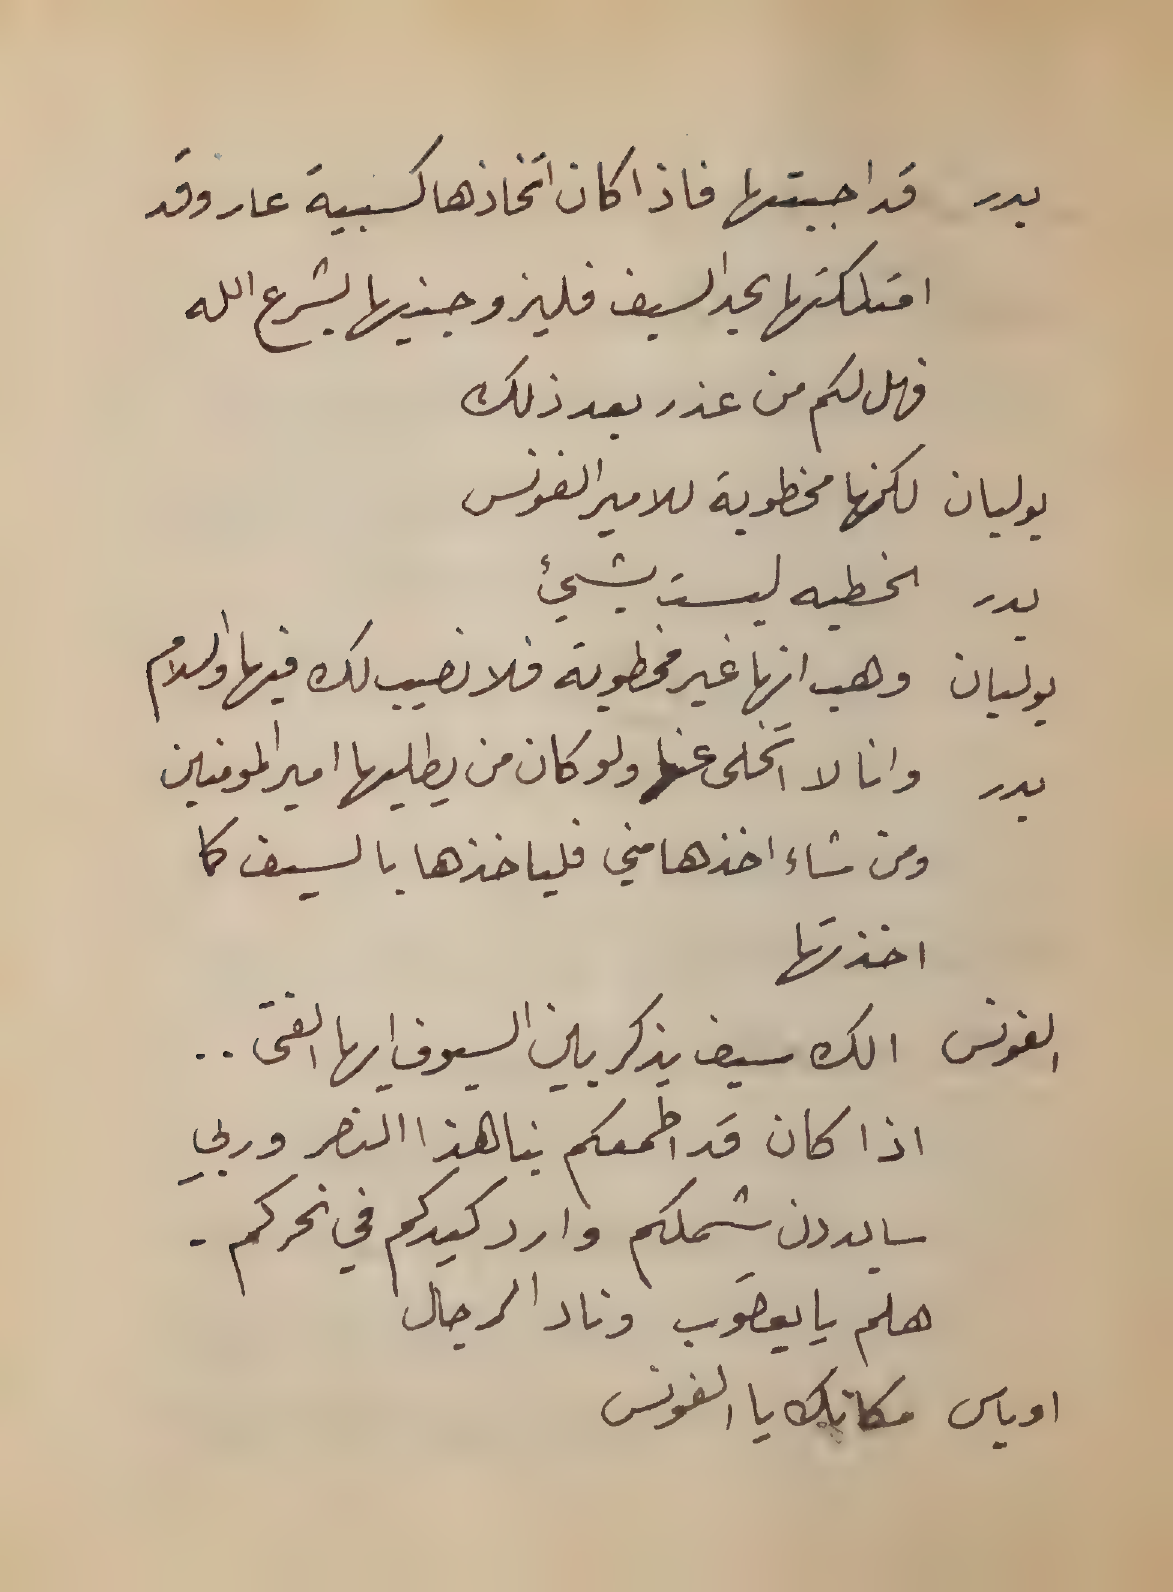 بدر قد اجبتها فاذا كان اتخاذها كسبية عار وقد
امتلكتها بحد السيف فليزوجنيها بشرع الله
فهل لكم من عذر بعد ذلك
يوليان لكنها مخطوبة للامير الفونس
بدر الخطبه ليست بشيئ
يوليان وهب انها غير مخطوبة فلا نصيب لك فيها والسلام
بدر وانا لا اتخلى عنها ولو كان من يطلبها امير المومنين
ومن شاء اخذها مني فلياخذها بالسيف كما
اخذتها
الفونس الك سيف يذكر بين السيوف ايها الفتى . .
اذا كان قد اطمعكم بنا هذا النصر وربي
سابددن شملكم وارد كيدكم في نحركم -
هلم يا يعقوب وناد الرجال
اوباس مكانك يا الفونس